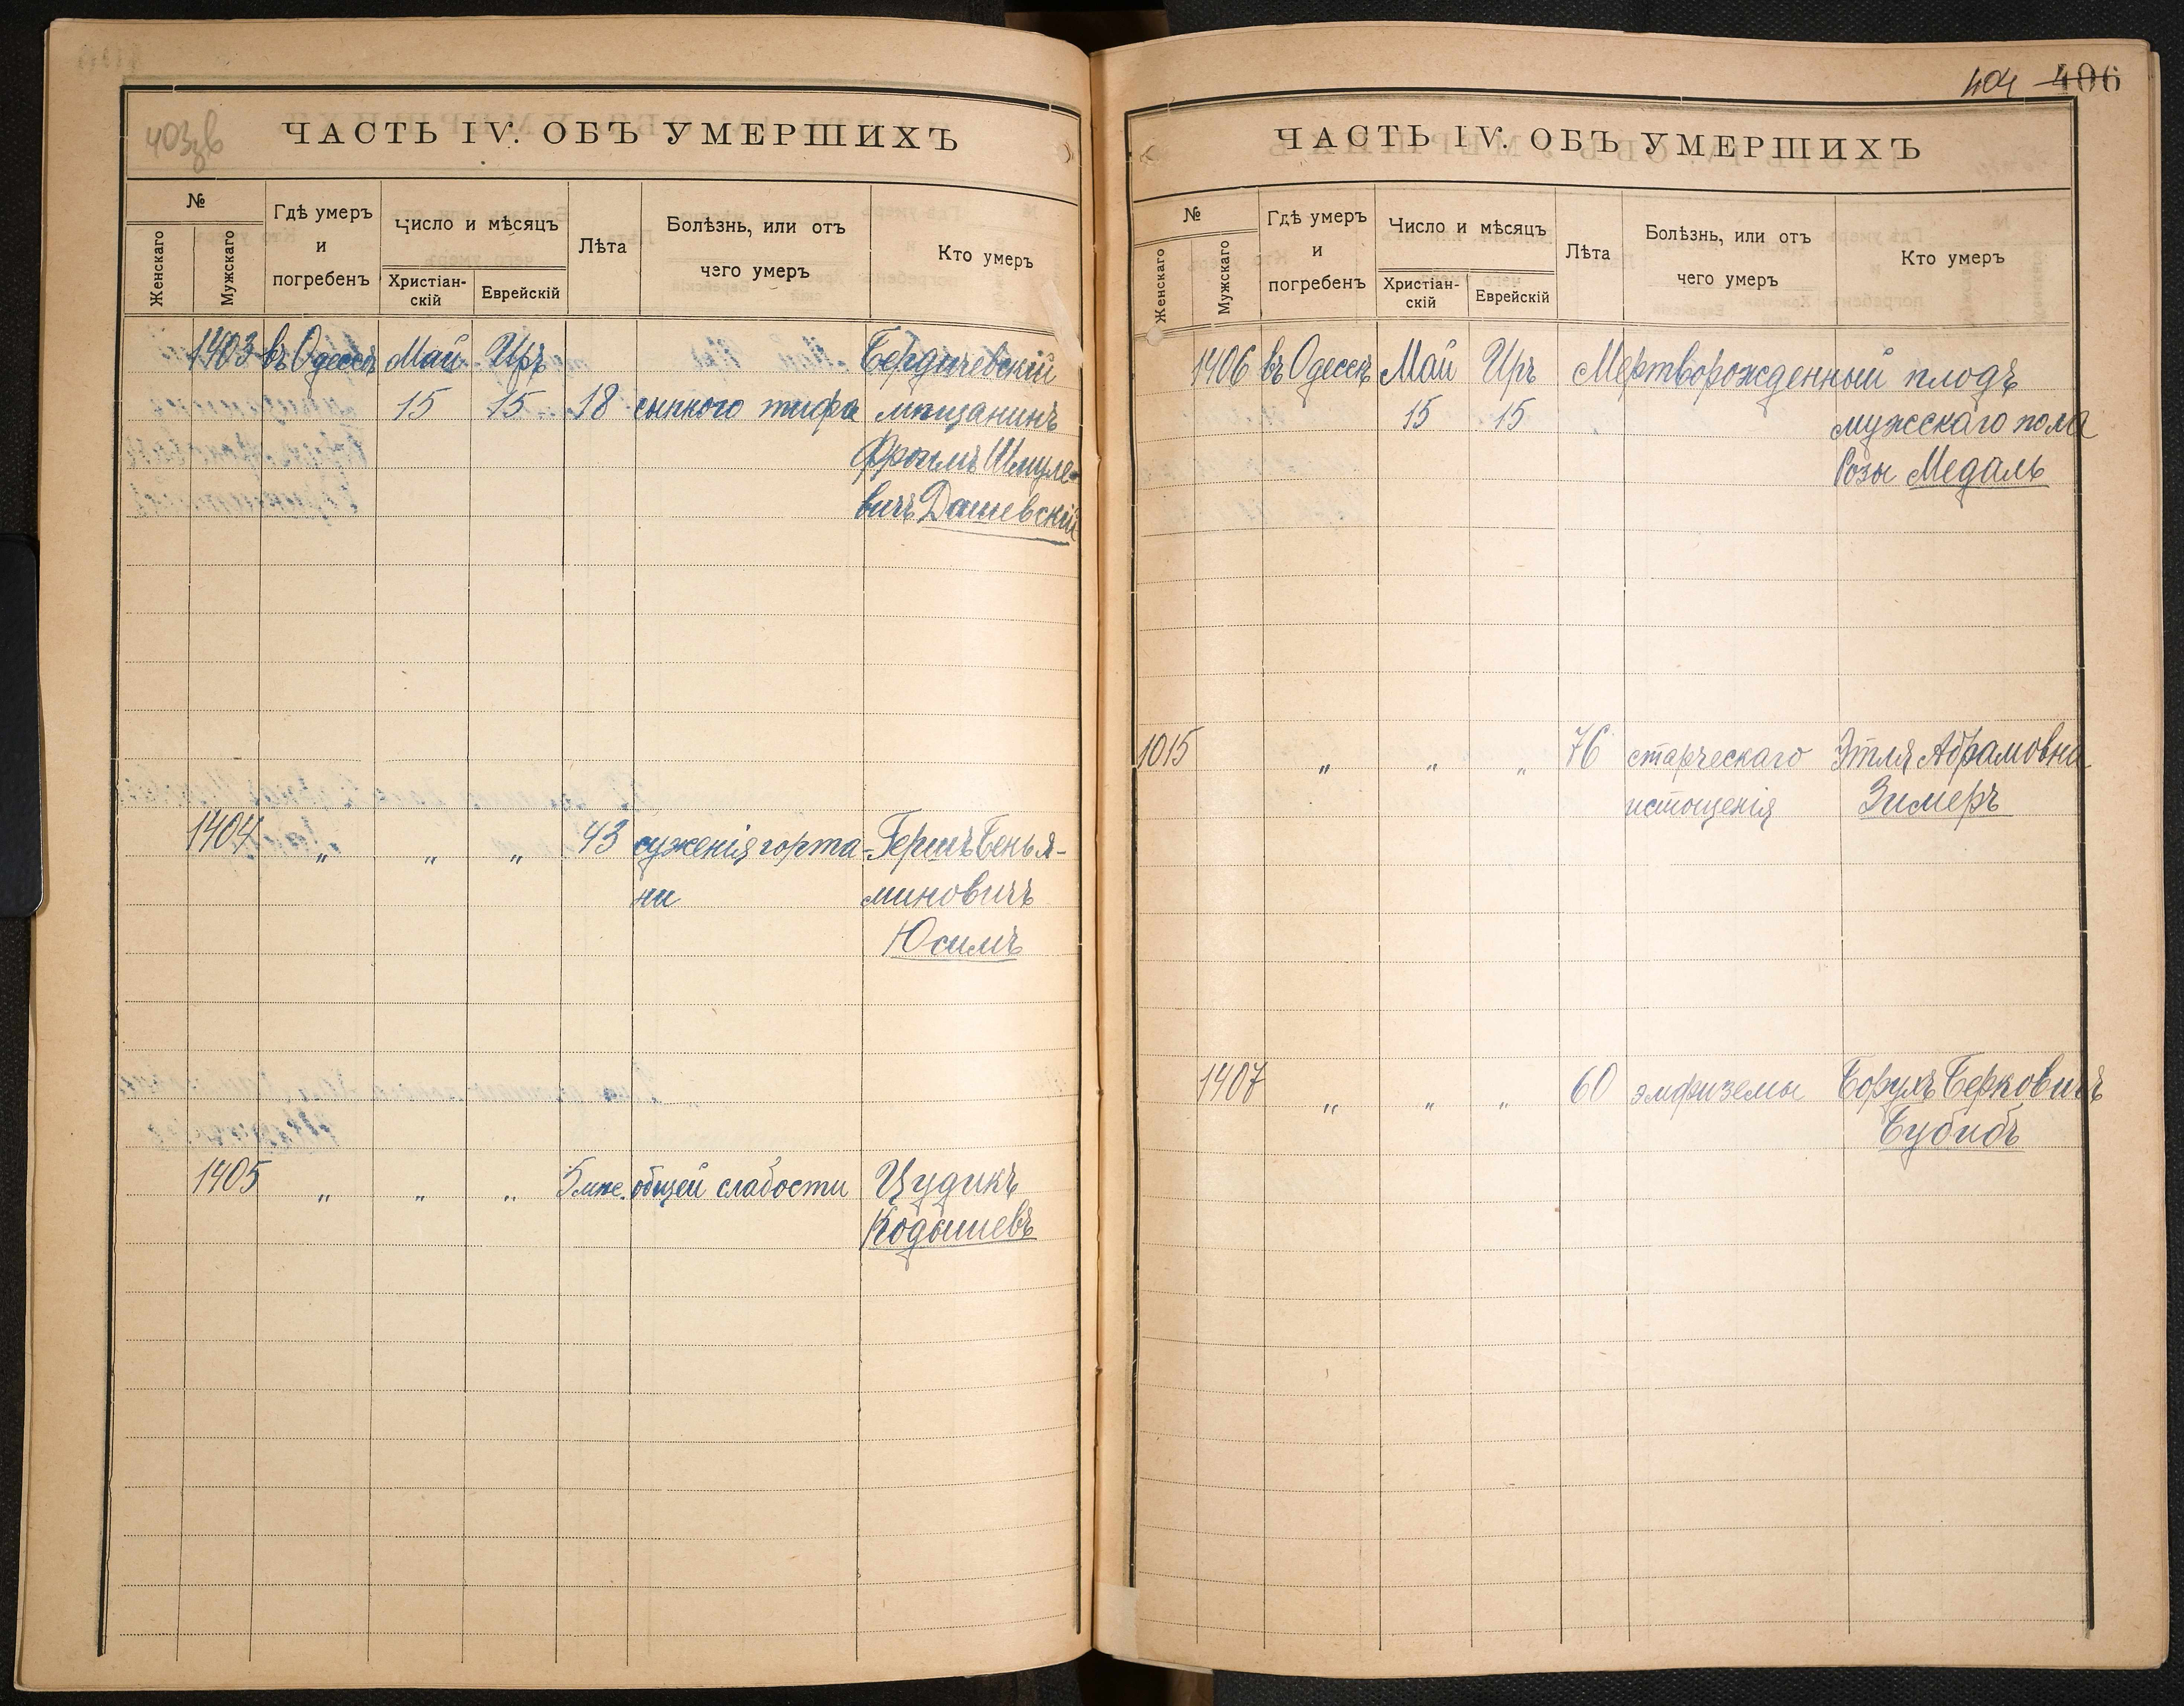 403зв
ЧАСТЬ IV. ОБЪ УМЕРШИХЪ
№
Женскаго
Мужскаго
Гдѣ умеръ
и
погребенъ
Число и мѣсяцъ
Христіан-
скій
Еврейскій
Лѣта
Болѣзнь, или отъ
чего умеръ
Кто умеръ
1403 въ Одессѣ Май Иръ Бердичевскій
15 15 18 сыпного тифа мѣщанинъ
Фроимъ Шмуле-
вичъ Дашевскій
1404 „ „ „ 43 суженія горта- Гершъ Бенья-
ни миновичъ
Юсимъ
1405 „ „ „ 5 мѣс. общей слабости Цудикъ
Кодышевъ
404 406
ЧАСТЬ IV. ОБЪ УМЕРШИХЪ
№
Женскаго
Мужскаго
Гдѣ умеръ
и
погребенъ
Число и мѣсяцъ
Христіан-
скій
Еврейскій
Лѣта
Болѣзнь, или отъ
чего умеръ
Кто умеръ
1406 въ Одессѣ Май Иръ Мертворожденный плодъ
15 15 мужскаго пола
Розы Медаль
1015 „ „ „ 76 старческаго Этля Абрамовна
истощенія Зимеръ
1407 „ „ „ 60 эмфиземы Борухъ Берковичъ
Бубибъ